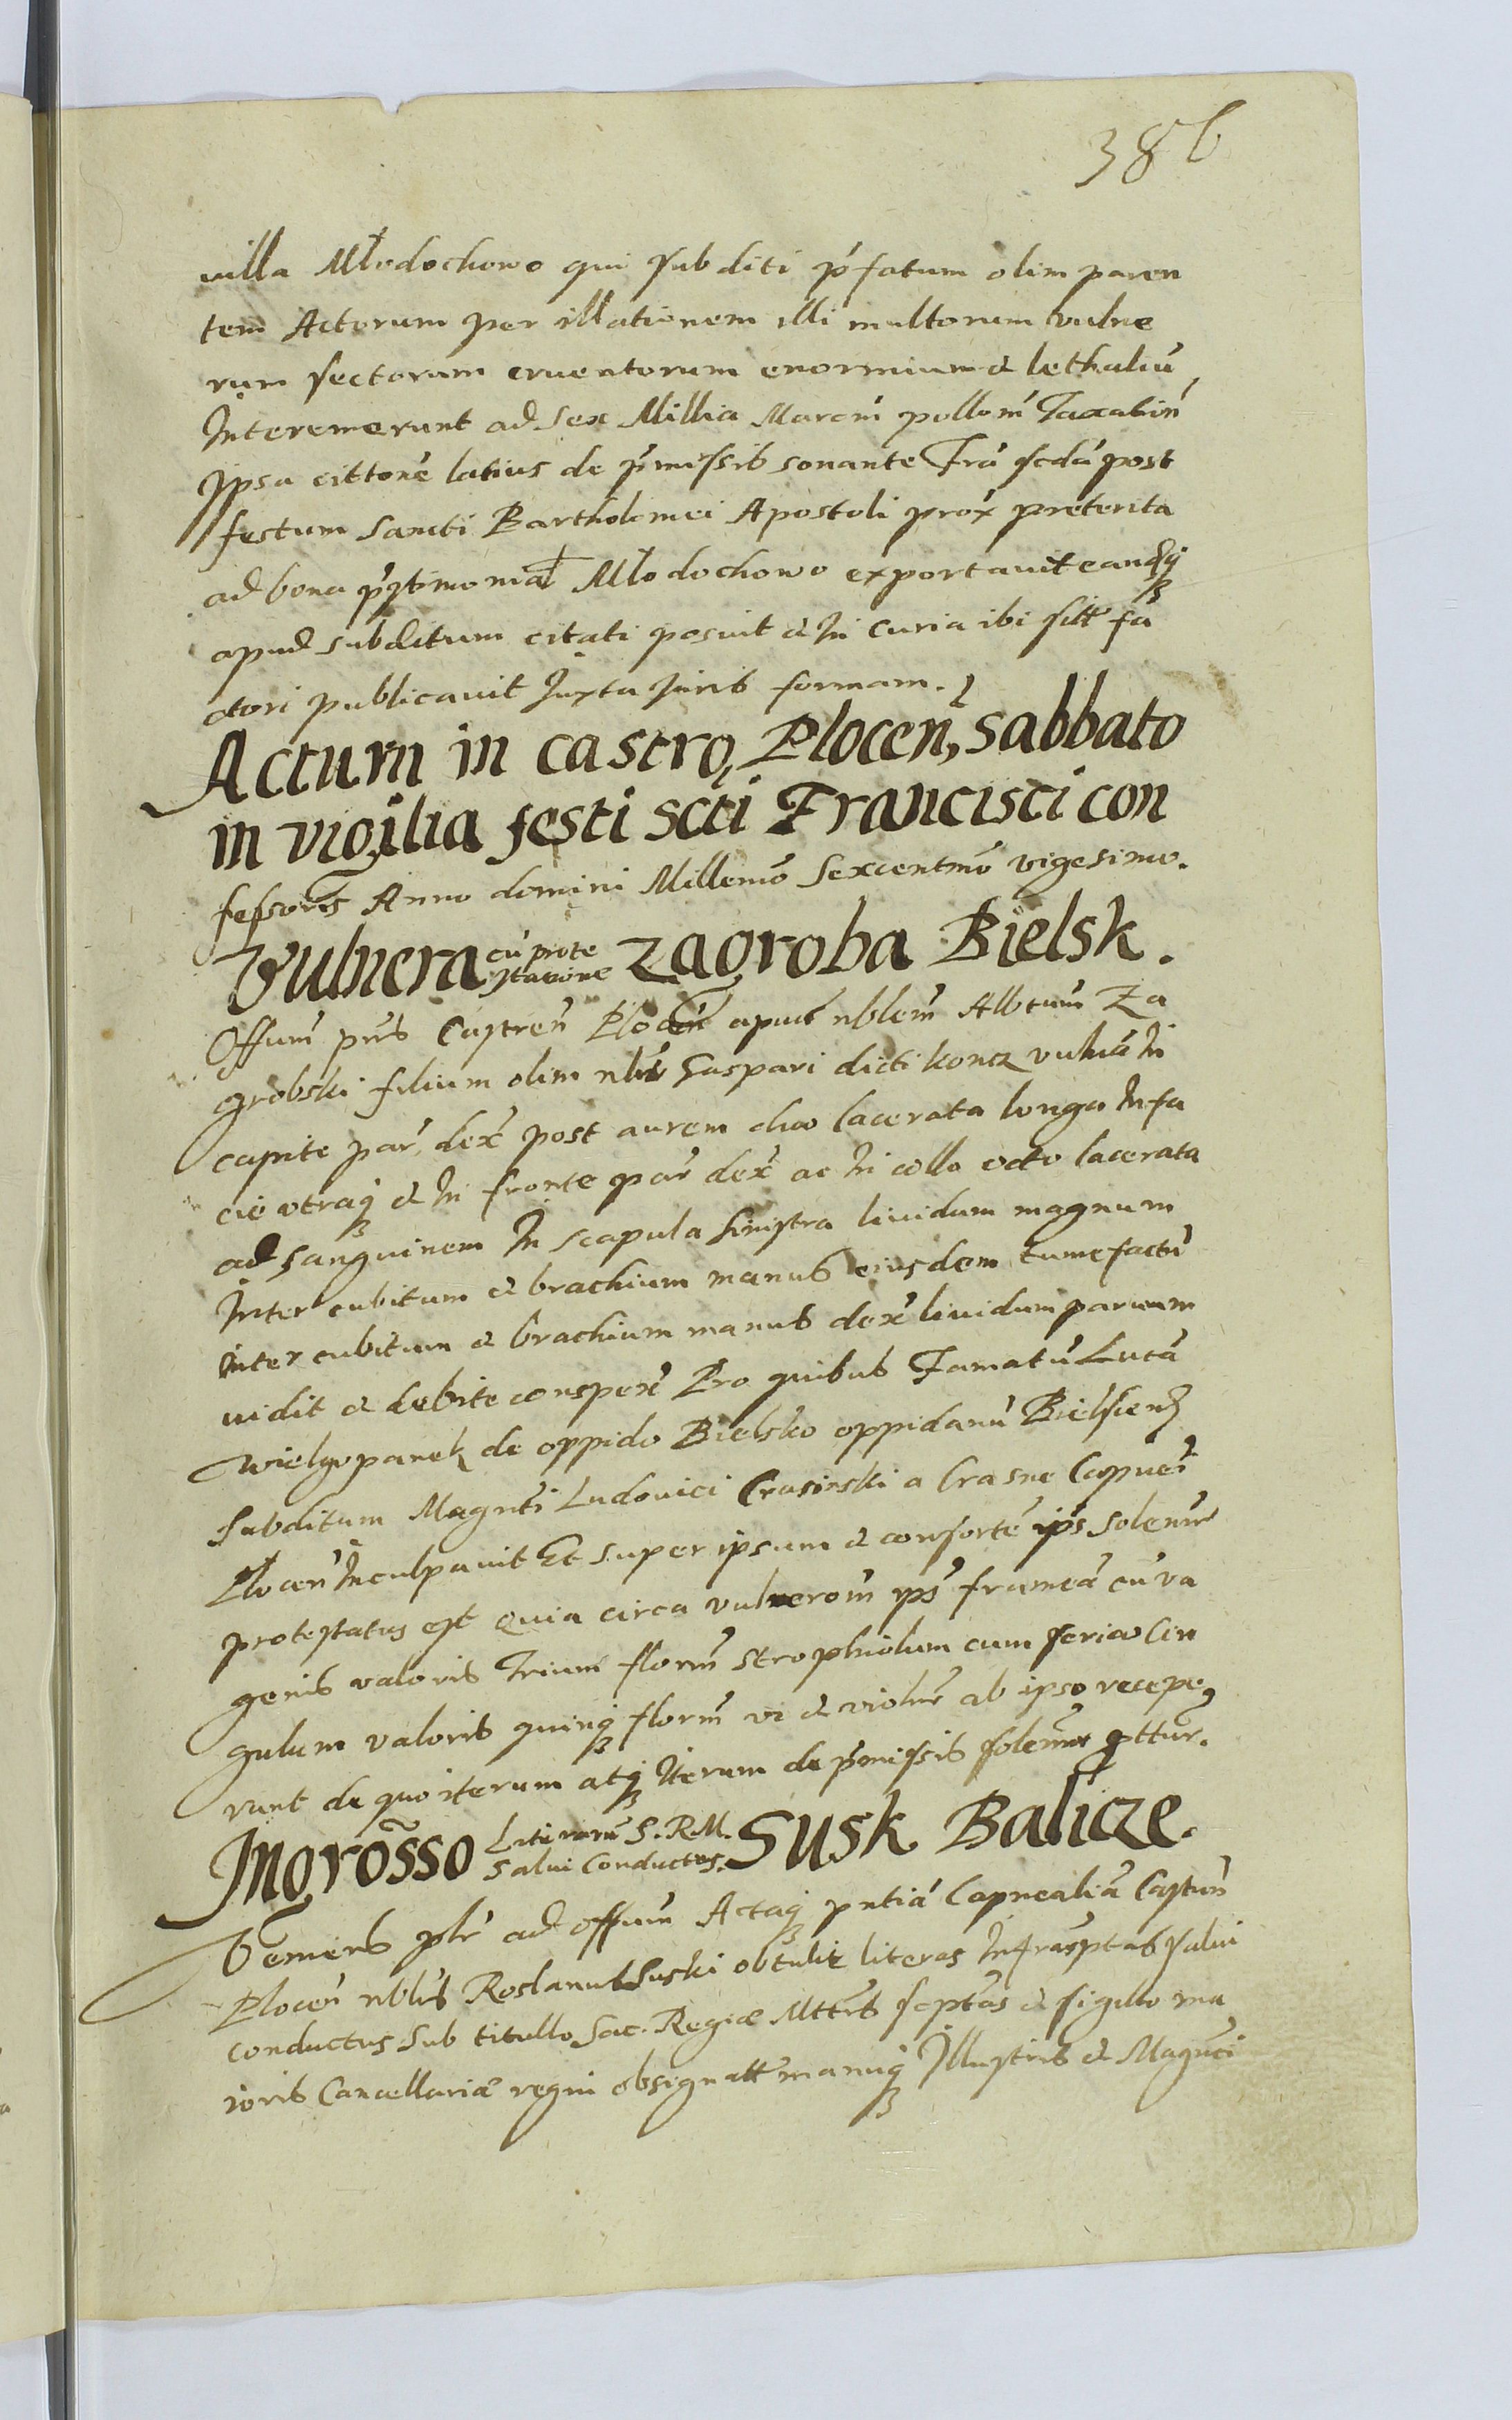 386
villa Młodochowo qui subditi p̃fatum olim paren
tem Actorum per illationem illi multorum vulne
rum sectorum cruentorum enormium & lethaliũ
Interemerunt ad sex Millia Marcm̃ pollom̃ Taxatim̃
Ipsa cittone latius de p̃missis sonante Fra scda post
festum Sancti Bartholomei Apostoli prox preterita
ad bona Młodochowo exportavit eandq
apud subditum citati posuit & in curia ibi sitt fa
ctori publicavit Juxta Juris formam.
Actum in castro Plocen, sabbato
in vigilia festi scti Francisci con
fessoris Anno domini Millemo Sexcentmo vigesimo.
Vulnera cũ prote
stacione Zagroba Bielsk.
Offum pns Castren Plocen apud nblem Albtum Za
grobski filium olim nblis Gaspari dicti koncz vulnã In
capite par dex post aurem duo lacerata longa In fa
cie utraq & In fronte par dex ac In collo octo lacerata
ad sanguinem In scapula sinistra lividum magnum
Inter cubitum & brachium manus eiusdem tumefactũ
Inter cubitum & brachium manus dex lividum parvum
vidit & debite conspex Pro quibus Famatũ Lucã
Wielgopanek de oppido Bielsko oppidanũ Bielscen
subditum Magnci Ludovici Crasinski a Crasne Capnei
Plocen Inculpavit Et super ipsum & consortẽ ips solenne
protestatus est Quia circa vulnerom ips frameã cũ va
genis valoris Trium florm strophiolum cum feria Cin
gulum valoris quinq florm vi & violne ab ipso recepe
runt de quo iterum atq Iterum de p̃missis solenne pttur.
Ingrosso Literarum S. R. M.
Salvi Conductus. Susk Balicze.
Veniens plr ad offum Actaq pntiã Capnealiã Castriñ
Plocen nblis Roslanus Suski obtulit literas Infrasptas salvi
conductus sub titullo Sac. Regiæ Mttis sciptas & sigillo ma
ioris Cancellariæ regni obsignatt manuq Illustris & Magnci